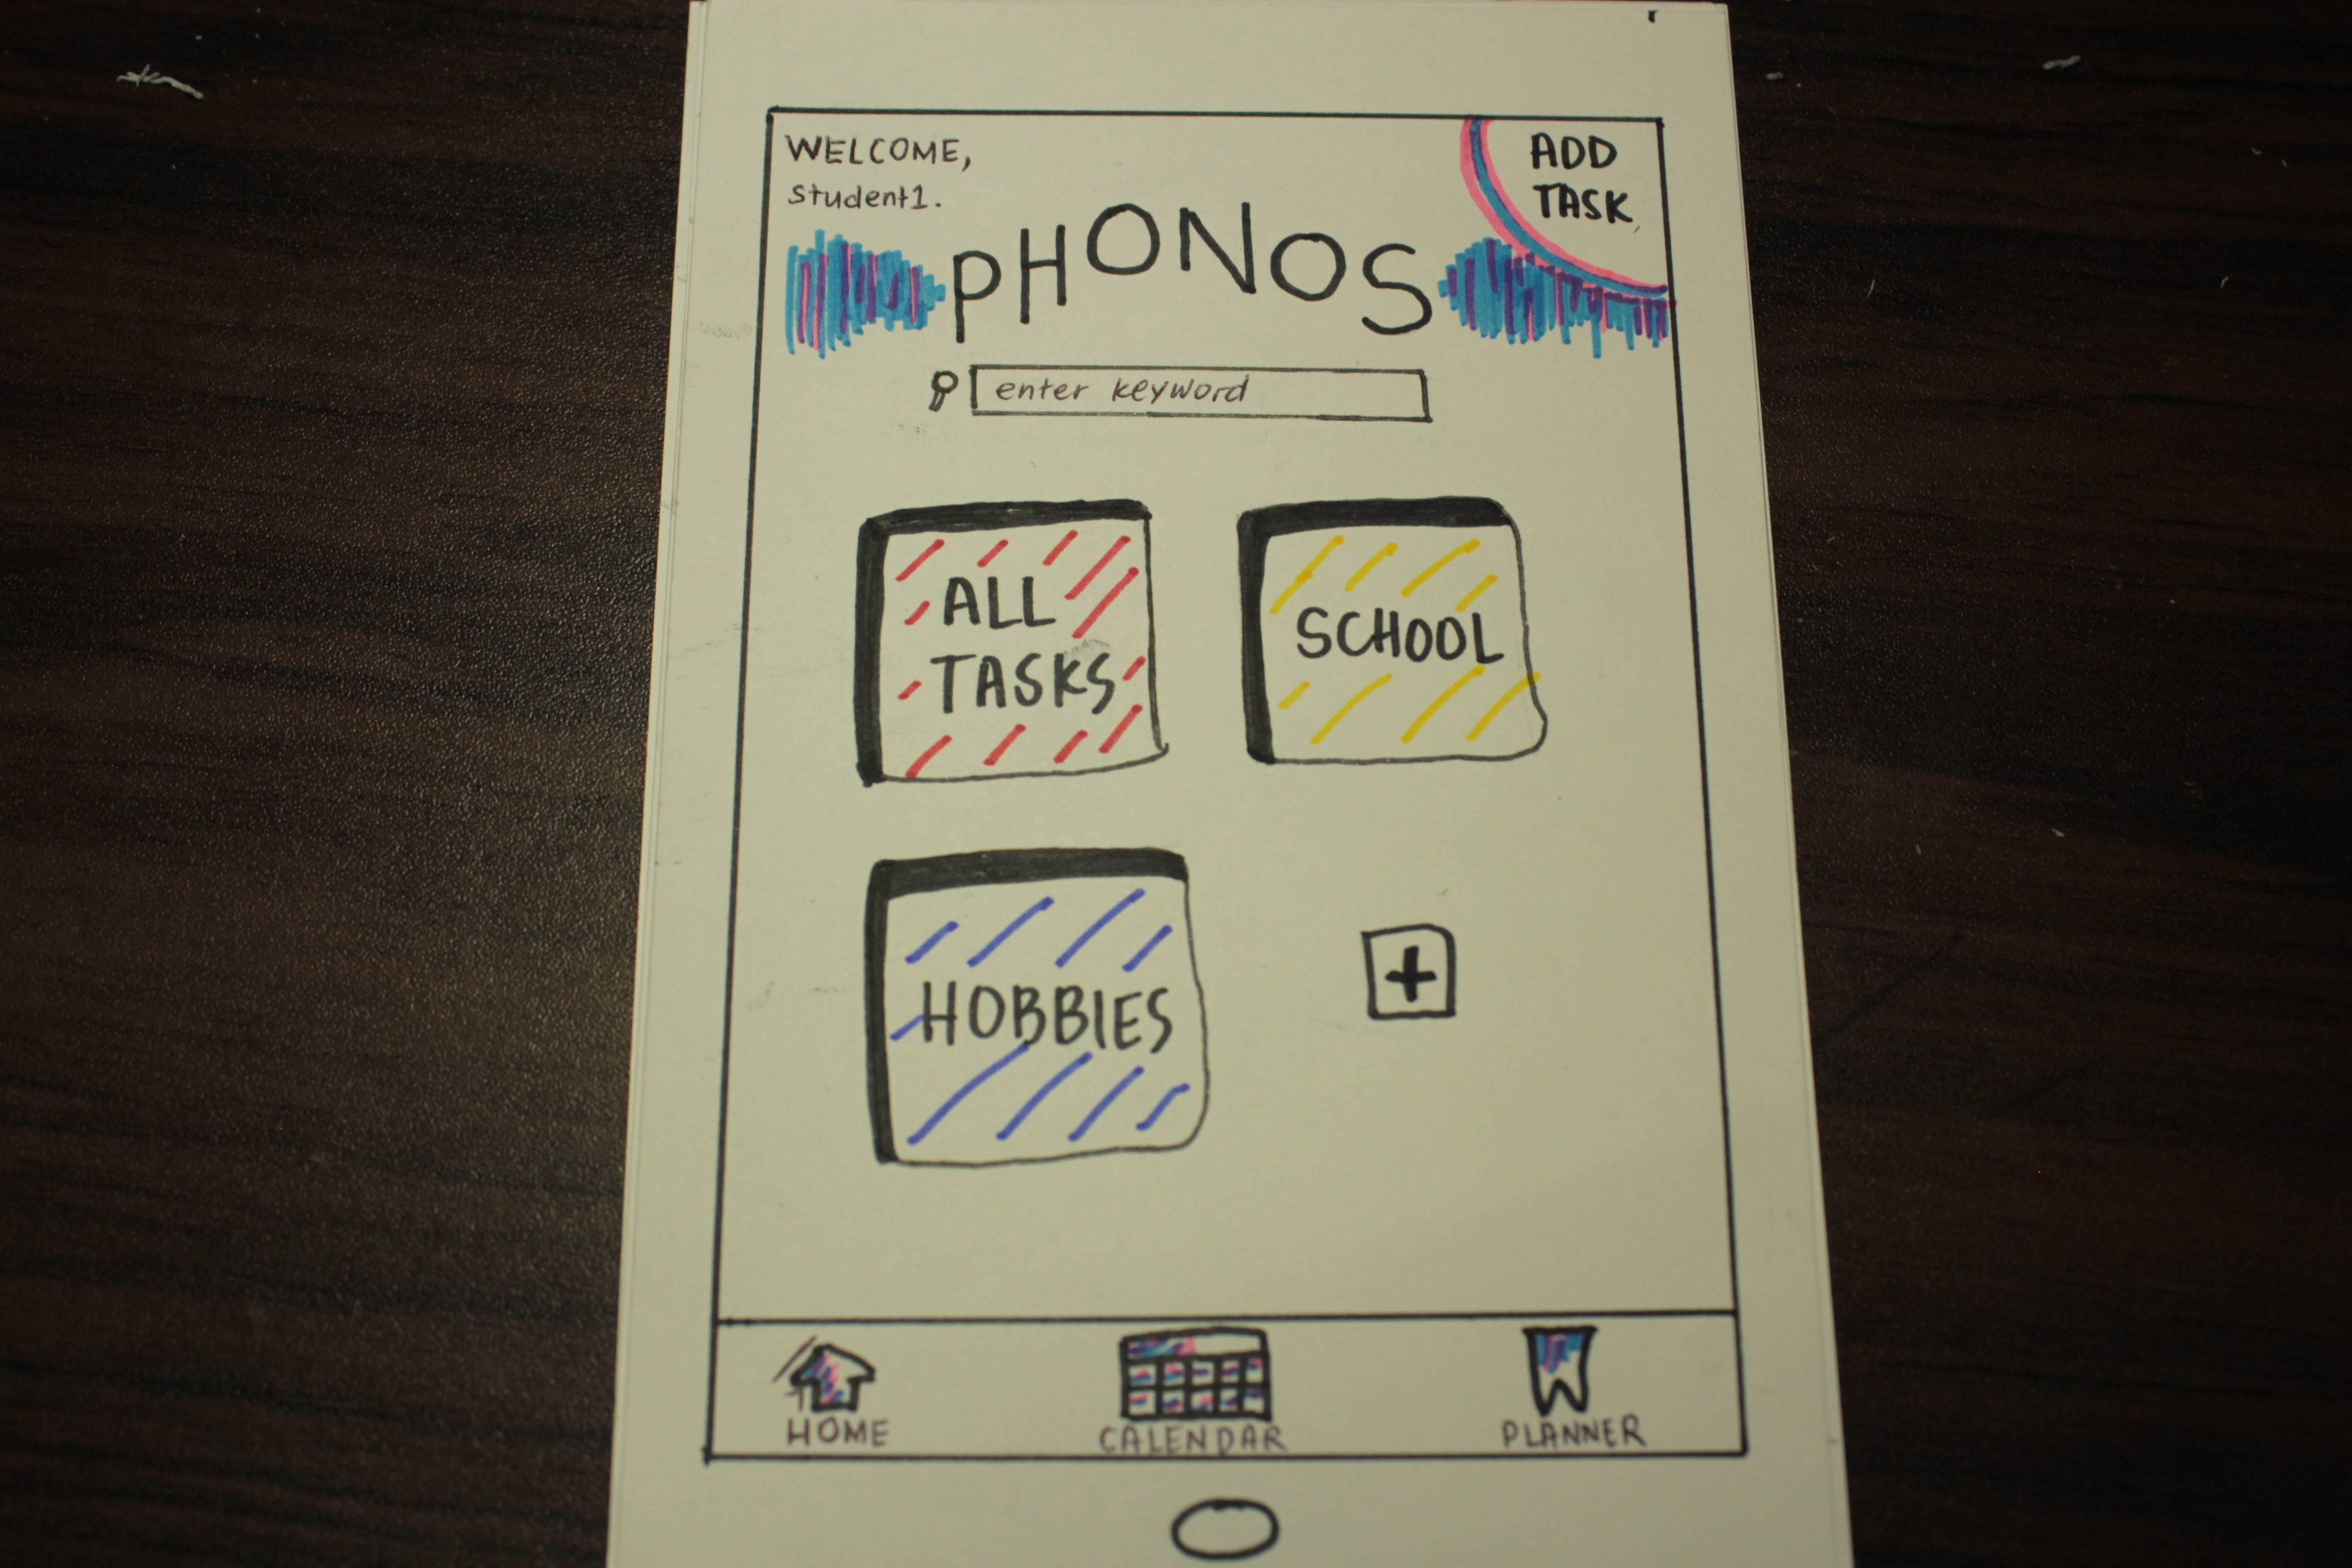 WELCOME,
Student1.
ADD
TASK
PHONOS
enter keyword
ALL
TASKS
SCHOOL
HOBBIES
+
HOME
CALENDAR
PLANNER